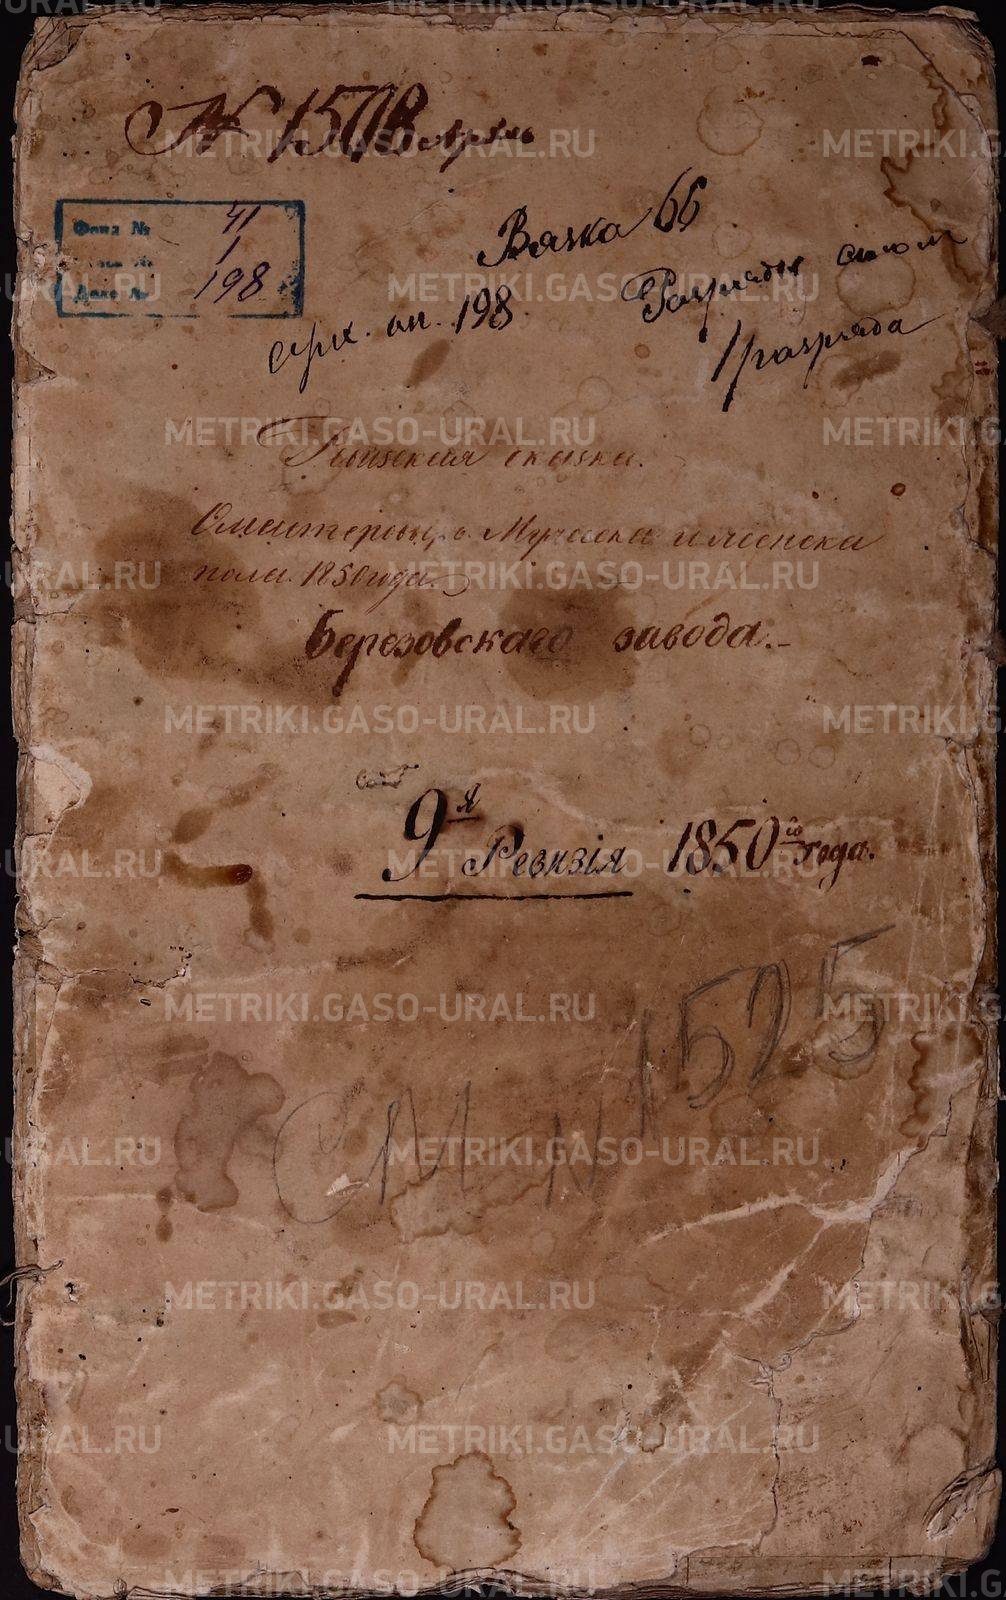 № 1508
Фонд № 41
1
Дело № 198
Вязка 66
арх. оп. 198.
Разряды столи
1 разряда
Ревизская сказка.
Мужеска и женска
пола. 1850 года.
Березовскаго завода.
9я Ревизія 1850го года.
См N 1525
METRIKI.GASO-URAL.RU